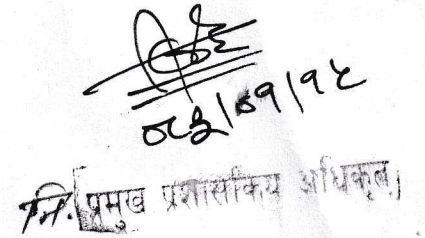 ०८३|०१|१५
नि. प्रमुख प्रशासकिय अधिकृत